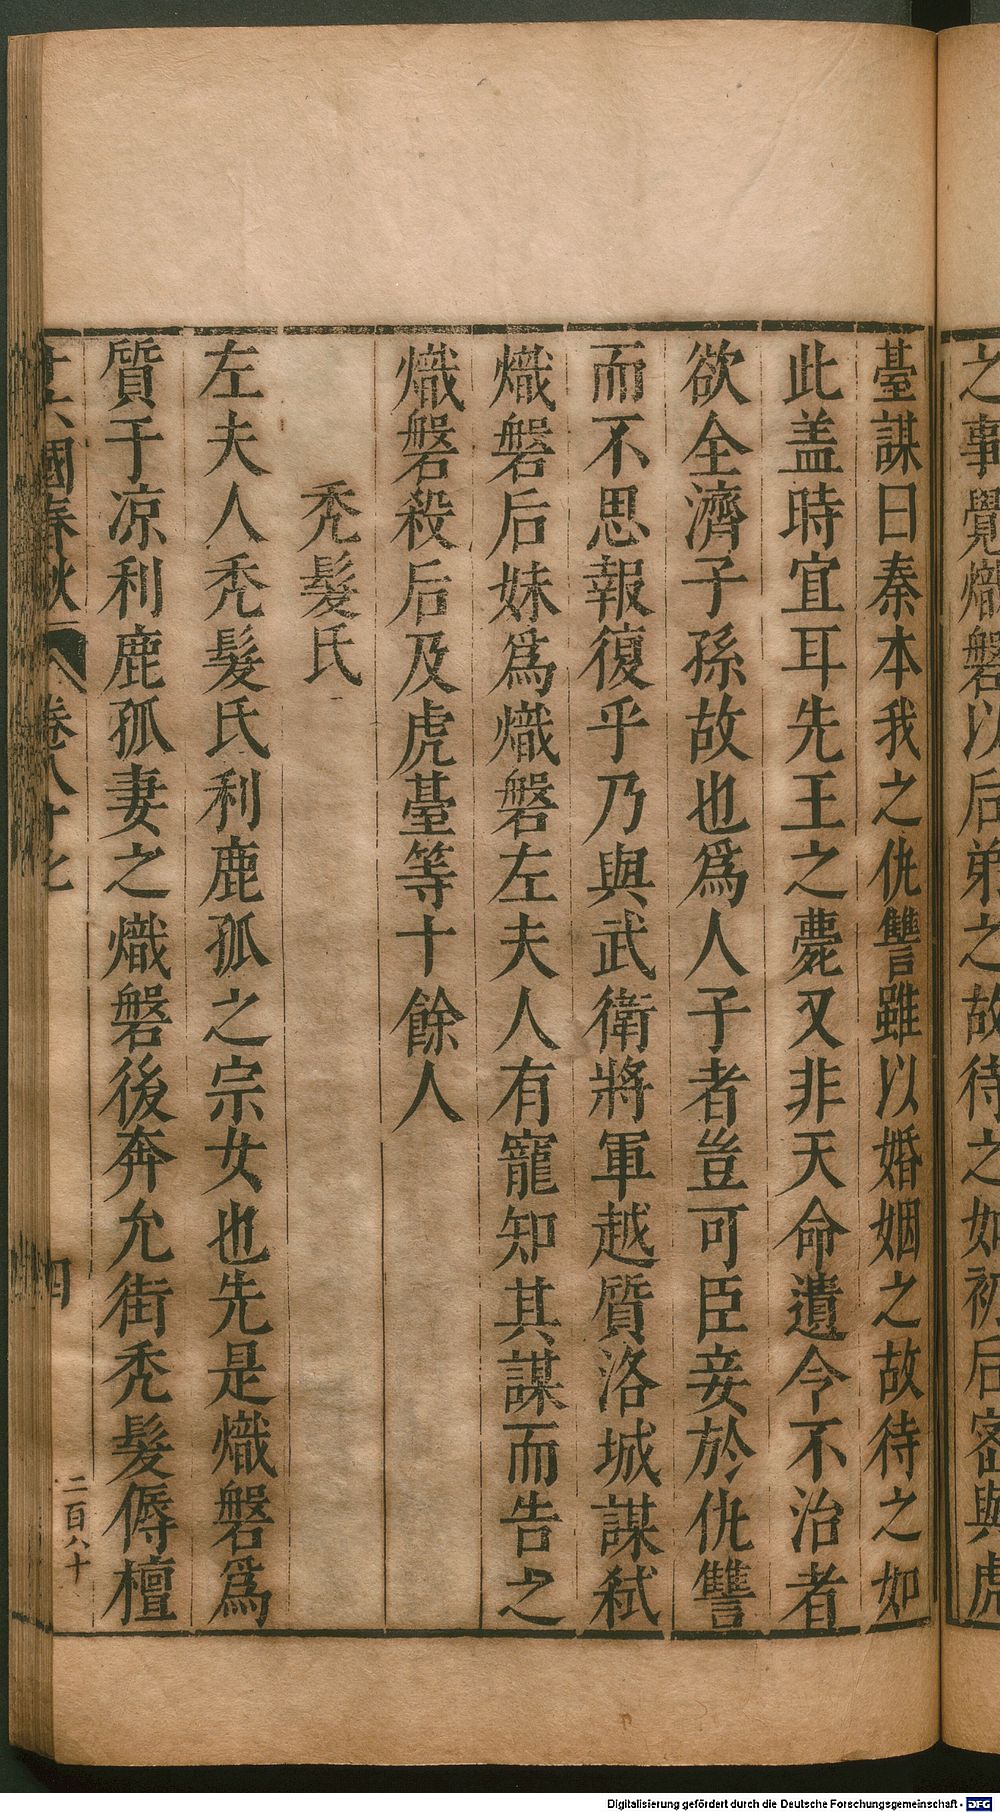 之事覺熾磐以后弟之故待之如初后密與虎
臺謀曰秦本我之仇讐雖以婚姻之故待之如
此盖時宜耳先王之薨又非天命遺令不治者
欲全濟子孫故也爲人子者豈可臣妾於仇讐
而不思報復乎乃與武衛將軍越質洛城謀弑
熾磐后妹爲熾磐左夫人有寵知其謀而告之
熾磐殺后及虎臺等十餘人
禿髮氏
左夫人禿髮氏利鹿孤之宗女也先是熾磐爲
質于凉利鹿孤妻之熾磐後奔允街禿髮傉檀
十六國春秋 卷八十七 四
二百八十
Digitalisierung gefördert durch die Deutsche Forschungsgemeinschaft - DFG